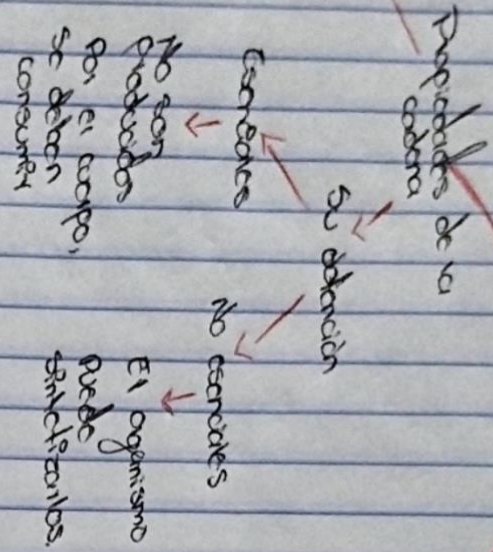 Propiedades de la
cadena
Su obtención
Esenciales
No son
producidos
por el cuerpo,
se deben
consumir
No esenciales
El organismo
puede
sintetizarlos.